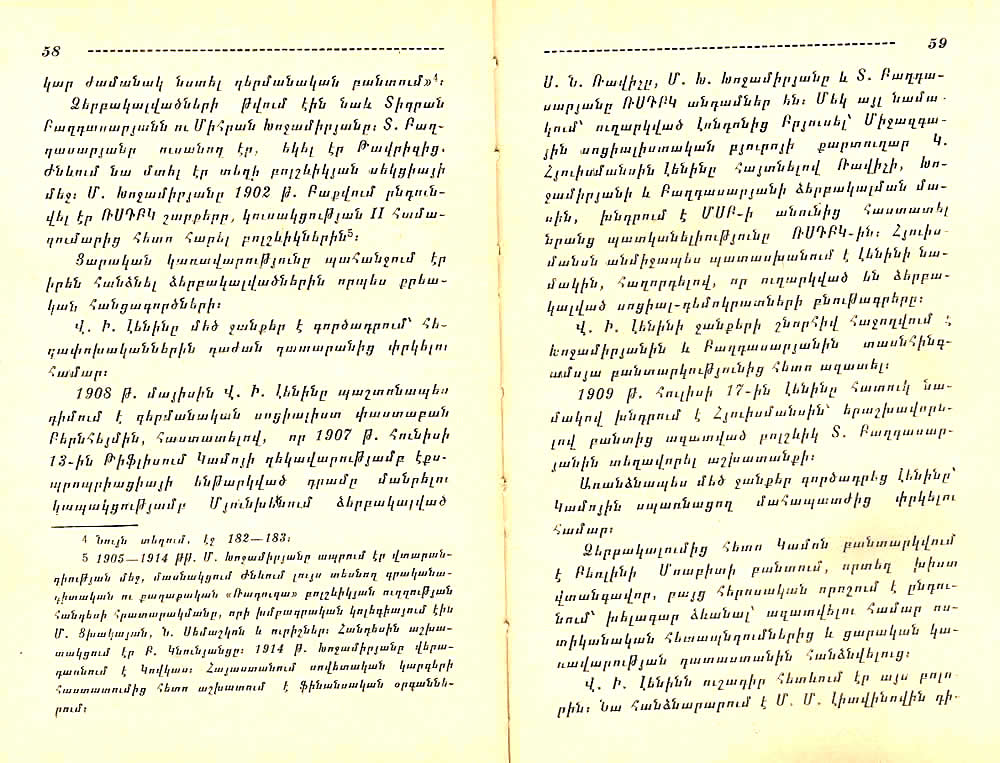 58
կար ժամանակ նստել գերմանական բանտում»⁴։
Ձերբակալվածների թվում էին նաև Տիգրան
Բաղդասարյանն ու Միհրան Խոջամիրյանը։ Տ. Բաղ-
դասարյանը ուսանող էր, եկել էր Թավրիզից.
Ժնևում նա մտել էր տեղի բոլշևիկյան սեկցիայի
մեջ։ Մ. Խոջամիրյանը 1902 թ. Բաքվում ընդուն-
վել էր ՌՍԴԲԿ շարքերը, կուսակցության II համա-
գումարից հետո հարել բոլշևիկներին⁵։
Ցարական կառավարությունը պահանջում էր
իրեն հանձնել ձերբակալվածներին որպես քրեա-
կան հանցագործների։
Վ. Ի. Լենինը մեծ ջանքեր է գործադրում՝ հե-
ղափոխականներին դաժան դատարանից փրկելու
համար։
1908 թ. մայիսին Վ. Ի. Լենինը պաշտոնապես
դիմում է գերմանական սոցիալիստ փաստաբան
Բերնհեյմին, հաստատելով, որ 1907 թ. հունիսի
13-ին Թիֆլիսում Կամոյի ղեկավարությամբ էքս-
պրոպրիացիայի ենթարկված դրամը մանրելու
կապակցությամբ Մյունխենում ձերբակալված
4 Նույն տեղում, էջ 182—183։
5 1905—1914 թթ. Մ. Խոջամիրյանը ապրում էր վտարան-
դիության մեջ, մասնակցում Ժնևում լույս տեսնող գրականա-
գիտական ու քաղաքական «Ռադուգա» բոլշևիկյան ուղղության
հանդեսի հրատարակմանը, որի խմբագրական կոլեգիայում էին
Մ. Ցխակայան, Ն. Սեմաշկոն և ուրիշներ։ Հանդեսին աշխա-
տակցում էր Բ. Կնունյանցը։ 1914 թ. Խոջամիրյանը վերա-
դառնում է Կովկաս։ Հայաստանում սովետական կարգերի
հաստատումից հետո աշխատում է ֆինանսական օրգաննե-
րում։
59
Ս. Ն. Ռավիչը, Մ. Խ. Խոջամիրյանը և Տ. Բաղդա-
սարյանը ՌՍԴԲԿ անդամներ են։ Մեկ այլ նամա-
կում՝ ուղարկված Լոնդոնից Բրյուսել՝ Միջազգա-
յին սոցիալիստական բյուրոյի քարտուղար Կ.
Հյուիսմանսին Լենինը հայտնելով Ռավիչի, Խո-
ջամիրյանի և Բաղդասարյանի ձերբակալման մա-
սին, խնդրում է ՄՍԲ-ի անունից հաստատել
նրանց պատկանելիությունը ՌՍԴԲԿ-ին։ Հյուիս-
մանսն անմիջապես պատասխանում է Լենինի նա-
մակին, հաղորդելով, որ ուղարկված են ձերբա-
կալված սոցիալ-դեմոկրատների բնութագրերը։
Վ. Ի. Լենինի ջանքերի շնորհիվ հաջողվում է
Խոջամիրյանին և Բաղդասարյանին տասնհինգ-
ամսյա բանտարկությունից հետո ազատել։
1909 թ. հուլիսի 17-ին Լենինը հատուկ նա-
մակով խնդրում է Հյուիսմանսին՝ երաշխավորե-
լով բանտից ազատված բոլշևիկ Տ. Բաղդասար-
յանին տեղավորել աշխատանքի։
Առանձնապես մեծ ջանքեր գործադրեց Լենինը՝
Կամոյին սպառնացող մահապատժից փրկելու
համար։
Ձերբակալումից հետո Կամոն բանտարկվում
է Բեռլինի Մոաբիտի բանտում, որտեղ խիստ
վտանգավոր, բայց հերոսական որոշում է ընդու-
նում՝ խելագար ձևանալ՝ ազատվելու համար ոս-
տիկանական հետապնդումներից և ցարական կա-
ռավարության դատաստանին հանձնվելուց։
Վ. Ի. Լենինն ուշադիր հետևում էր այս բոլո-
րին։ Նա հանձնարարում է Մ. Մ. Լիտվինովին դի-